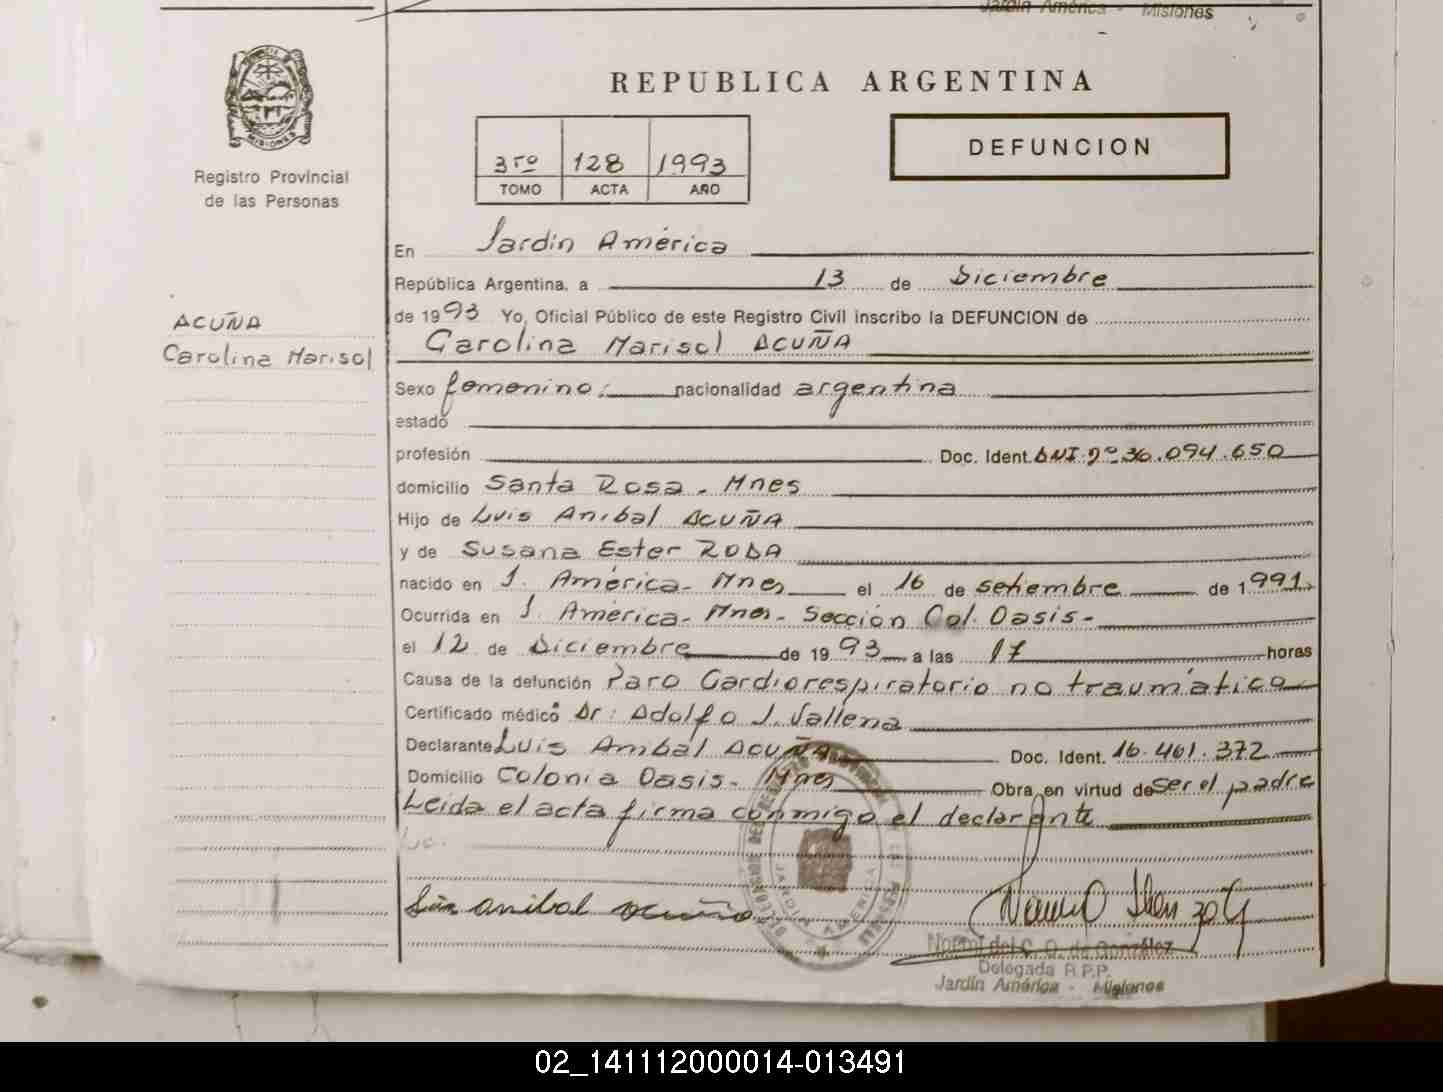 Jardín América - Misiones
REPUBLICA ARGENTINA
DEFUNCION
3ro 128 1993
TOMO ACTA AÑO
MISIONES
Registro Provincial
de las Personas
En Jardín América
República Argentina, a 13 de Diciembre
de 1993 Yo, Oficial Público de este Registro Civil inscribo la DEFUNCION de
ACUÑA
Carolina Marisol
Carolina Marisol ACUÑA
Sexo femenino; nacionalidad argentina
estado
profesión Doc. Ident. DNI nº 36.094.650
domicilio Santa Rosa. Mnes
Hijo de Luis Anibal ACUÑA
y de Susana Ester RODA
nacido en J. América- Mnes el 16 de setiembre de 1991
Ocurrida en J. América- Mnes- Sección Col. Oasis-
el 12 de Diciembre de 1993 a las 17 horas
Causa de la defunción Paro Cardiorespiratorio no traumático
Certificado médico Dr: Adolfo J. Vallena
Declarante Luis Anibal ACUÑA Doc. Ident. 16.461.372
Domicilio Colonia Oasis- Mnes Obra en virtud de ser el padre
Leida el acta firma conmigo el declarante
JARDIN AMERICA
anibal acuña
de González
Delegada R.P.P.
Jardín América - Misiones
02_141112000014-013491